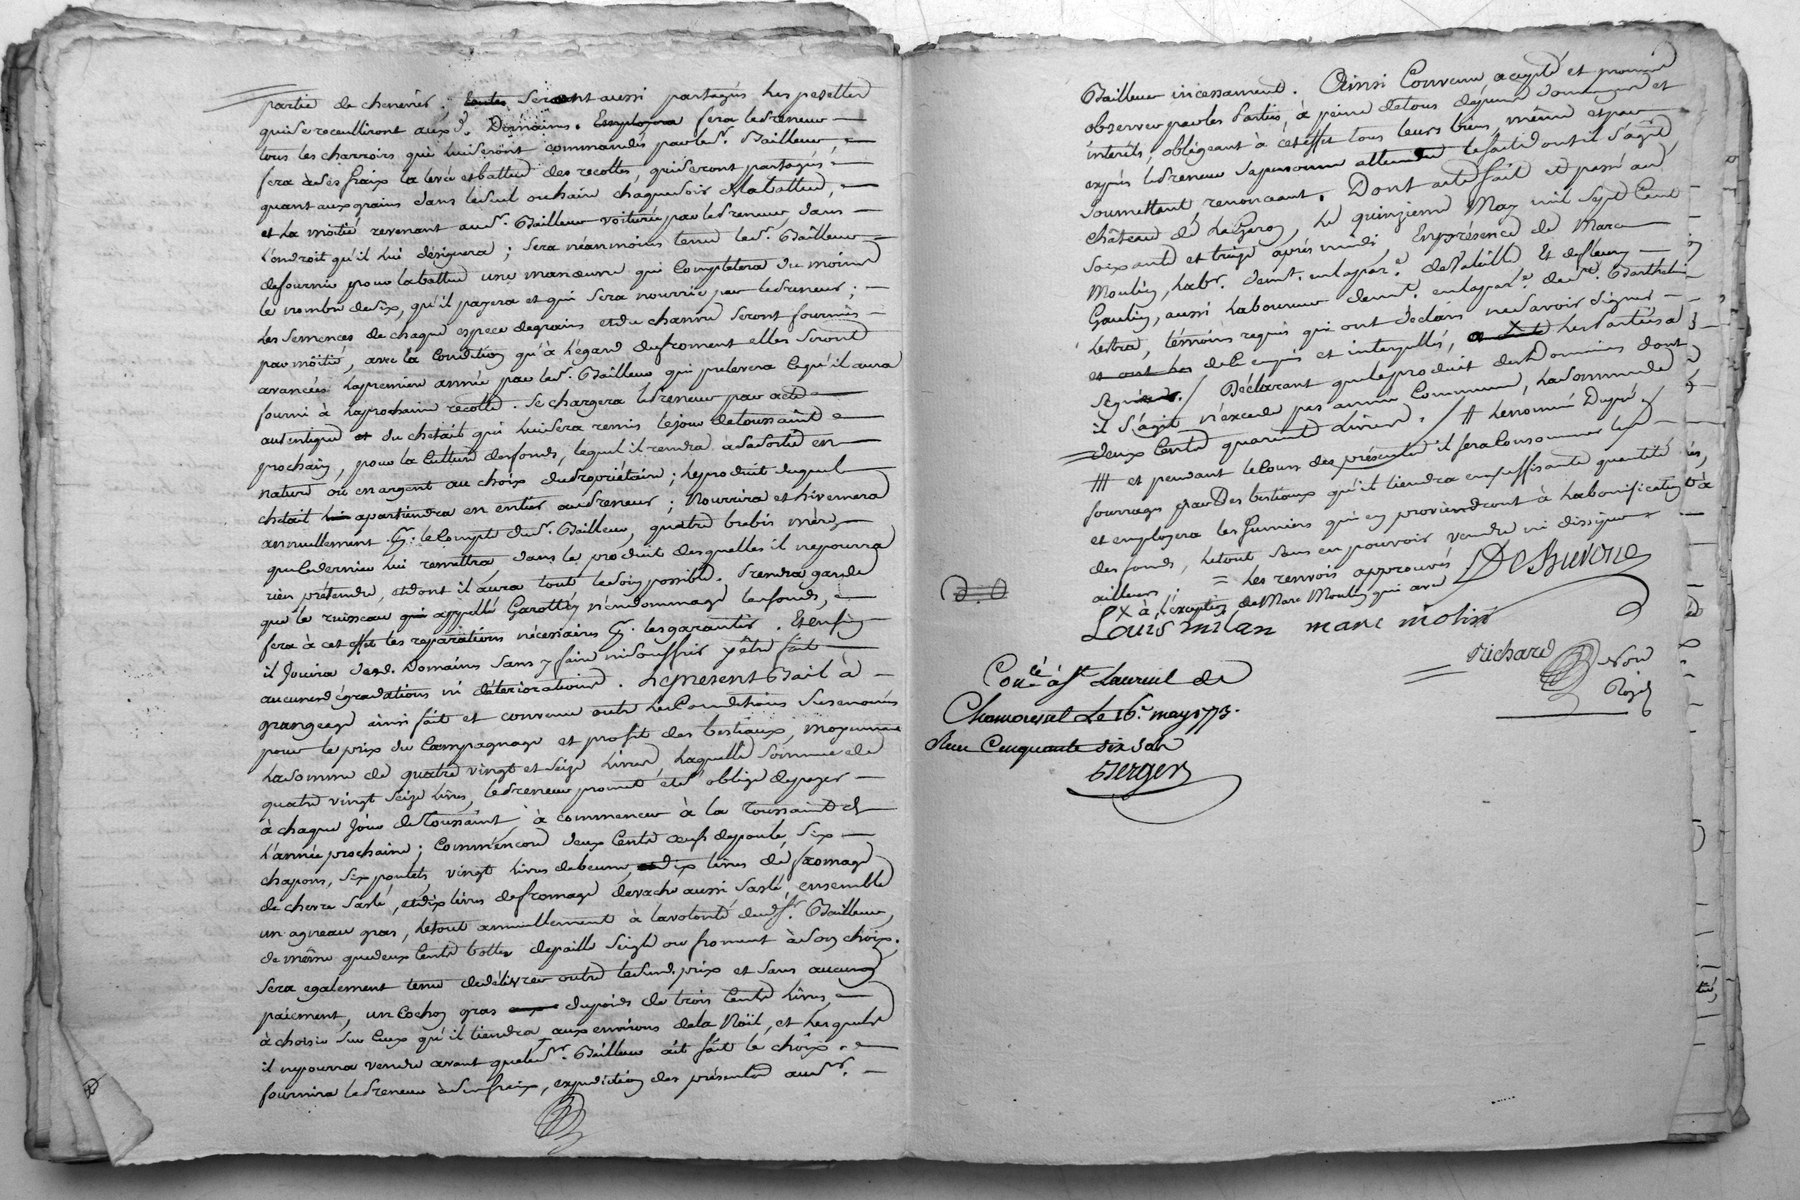 partie de cheneviér. Seront aussi partagés les pesettes
qui se receuilliront auxd. Domaines. fera le preneur
tous les charroirs qui lui seront commandés par led. Sr. Bailleur,
fera à ses fraix la levée et batture des recoltes, qui seront partagés
quant aux grains dans le suel ou haire chaque soir de la batture,
et la moitié revenant aud. Sr. Bailleur voiturée par le preneur dans
l'endroit qu'il lui désignera ; Sera néanmoins tenu led. Sr. Bailleur
de fournir pour la batture une manœuvre qui completera du moins
le nombre de six, qu'il payera et qui sera nourrie par le preneur ;
les semences de chaque espece de grains et du chanvre seront fournies
par moitié, avec la condition qu'à l'égard du froment elles seront
avancées la premiere année par led. Sr. Bailleur qui prelevera ce qu'il aura
fourni à la prochaine recolte. Se chargera le preneur par acte
autentique du chetail qui lui sera remis le jour de toussaint
prochain, pour la culture des fonds, lequel il rendra à sa sortie en
nature ou en argent au choix du propriétaire ; le produit duquel
chetail apartiendra en entier au preneur ; Nourrira et hivernera
annuellement pr. le compte dud. Sr. Bailleur, quatre brebis mères,
que ce dernier lui remettra, dans le produit desquelles il ne pourra
rien prétendre, et dont il aura tout le soin possible. Prendra garde
que le ruisseau appellé Garottey n'endommage les fonds,
fera à cet effet les reparations nécessaires pr. les garantir. Et enfin
il Jouira desd. Domaines sans y faire ni souffrir y être fait
aucunes dégradations ni déteriorations. Le present Bail à
grangeage ainsi fait et convenu outre les Conditions susenoncées
pour le prix du Campagnage et profit des bestiaux, moyennant
la somme de quatre vingt et seize livres, laquelle somme de
quatre vingt seize livres, le preneur promet et s'oblige de payer
à chaque jour de Toussaint à commencer à la Toussaint de
l'année prochaine ; Comm'encore deux Cents œufs de poule, six
chapons, six poulets, vingt livres de beurre, dix livres de fromage
de chevre sarlé, et dix livres de fromage de vache aussi sarlé, ensemble
un agneau gras, le tout annuellement à la volonté dud. Sr. Bailleur,
de même que deux Cents bottes de paille seigle ou froment à son choix.
Sera egalement tenu de délivrer outre le susd. prix et sans aucun
paiement, un cochon gras du poids de trois Cents livres,
à choisir sur ceux qu'il tiendra aux environs de la Noël, et lesquels
il ne pourra vendre avant que led. Sr. Bailleur ait fait le choix.
fournira le preneur à ses fraix, expedition des présentes aud. Sr.
Bailleur incessament. Ainsi Convenu, accepté et promis
observer par les Parties, à peine de tous dépens dommages et
intérêts, obligeant à cet effet tous leurs biens, même et par
exprès le preneur sa personne attendu le fait dont il s'agit
soumettant renonceant. Dont acte fait et passé au
château de , le quinzieme May mil sept Cent
soixante et treize après midi, En présence de Marc
Moulin, habt. demt. en la par.e de et de fleury
Gaulin, aussi laboureur demt. en la par.e de St. Barthelmi
Lestra, témoins requis qui ont declaré ne savoir signer
de ce enquis et interpellés, les Parties a
signé. / Déclarant que le produit desd. Domaines dont
il s'agit n'excede pas année Commune, la somme de
deux Cents quarante Livres. / # le nommé Dupré
### et pendant le Cours des présentes il fera consommer les
fourages par des bestiaux qu'il tiendra en suffisante quantité
et employera les fumiers qui en proviendront à la bonification
des fonds, le tout sans en pouvoir vendre ni dissiper
ailleurs ; = les renvois approuvés
X à l'exception de Marc Moulin qui a
Louis milan marc molin
richard Nore
Royal
Con.lé à St. Laurent de
Chamousset le 16.e may 1773.
Reçu Cinquante six sols
Berger